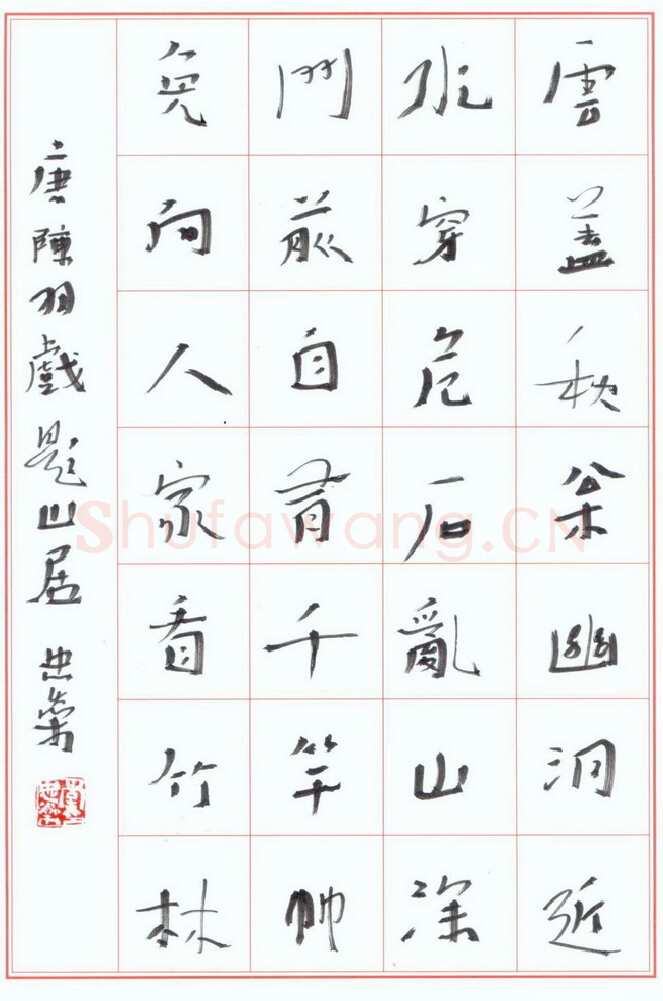 雲蓋秋枀幽洞近
水穿危石亂山深
門前自有千竿竹
免向人家看竹林
唐陳羽戲題山居 忠
Shufawang.CN